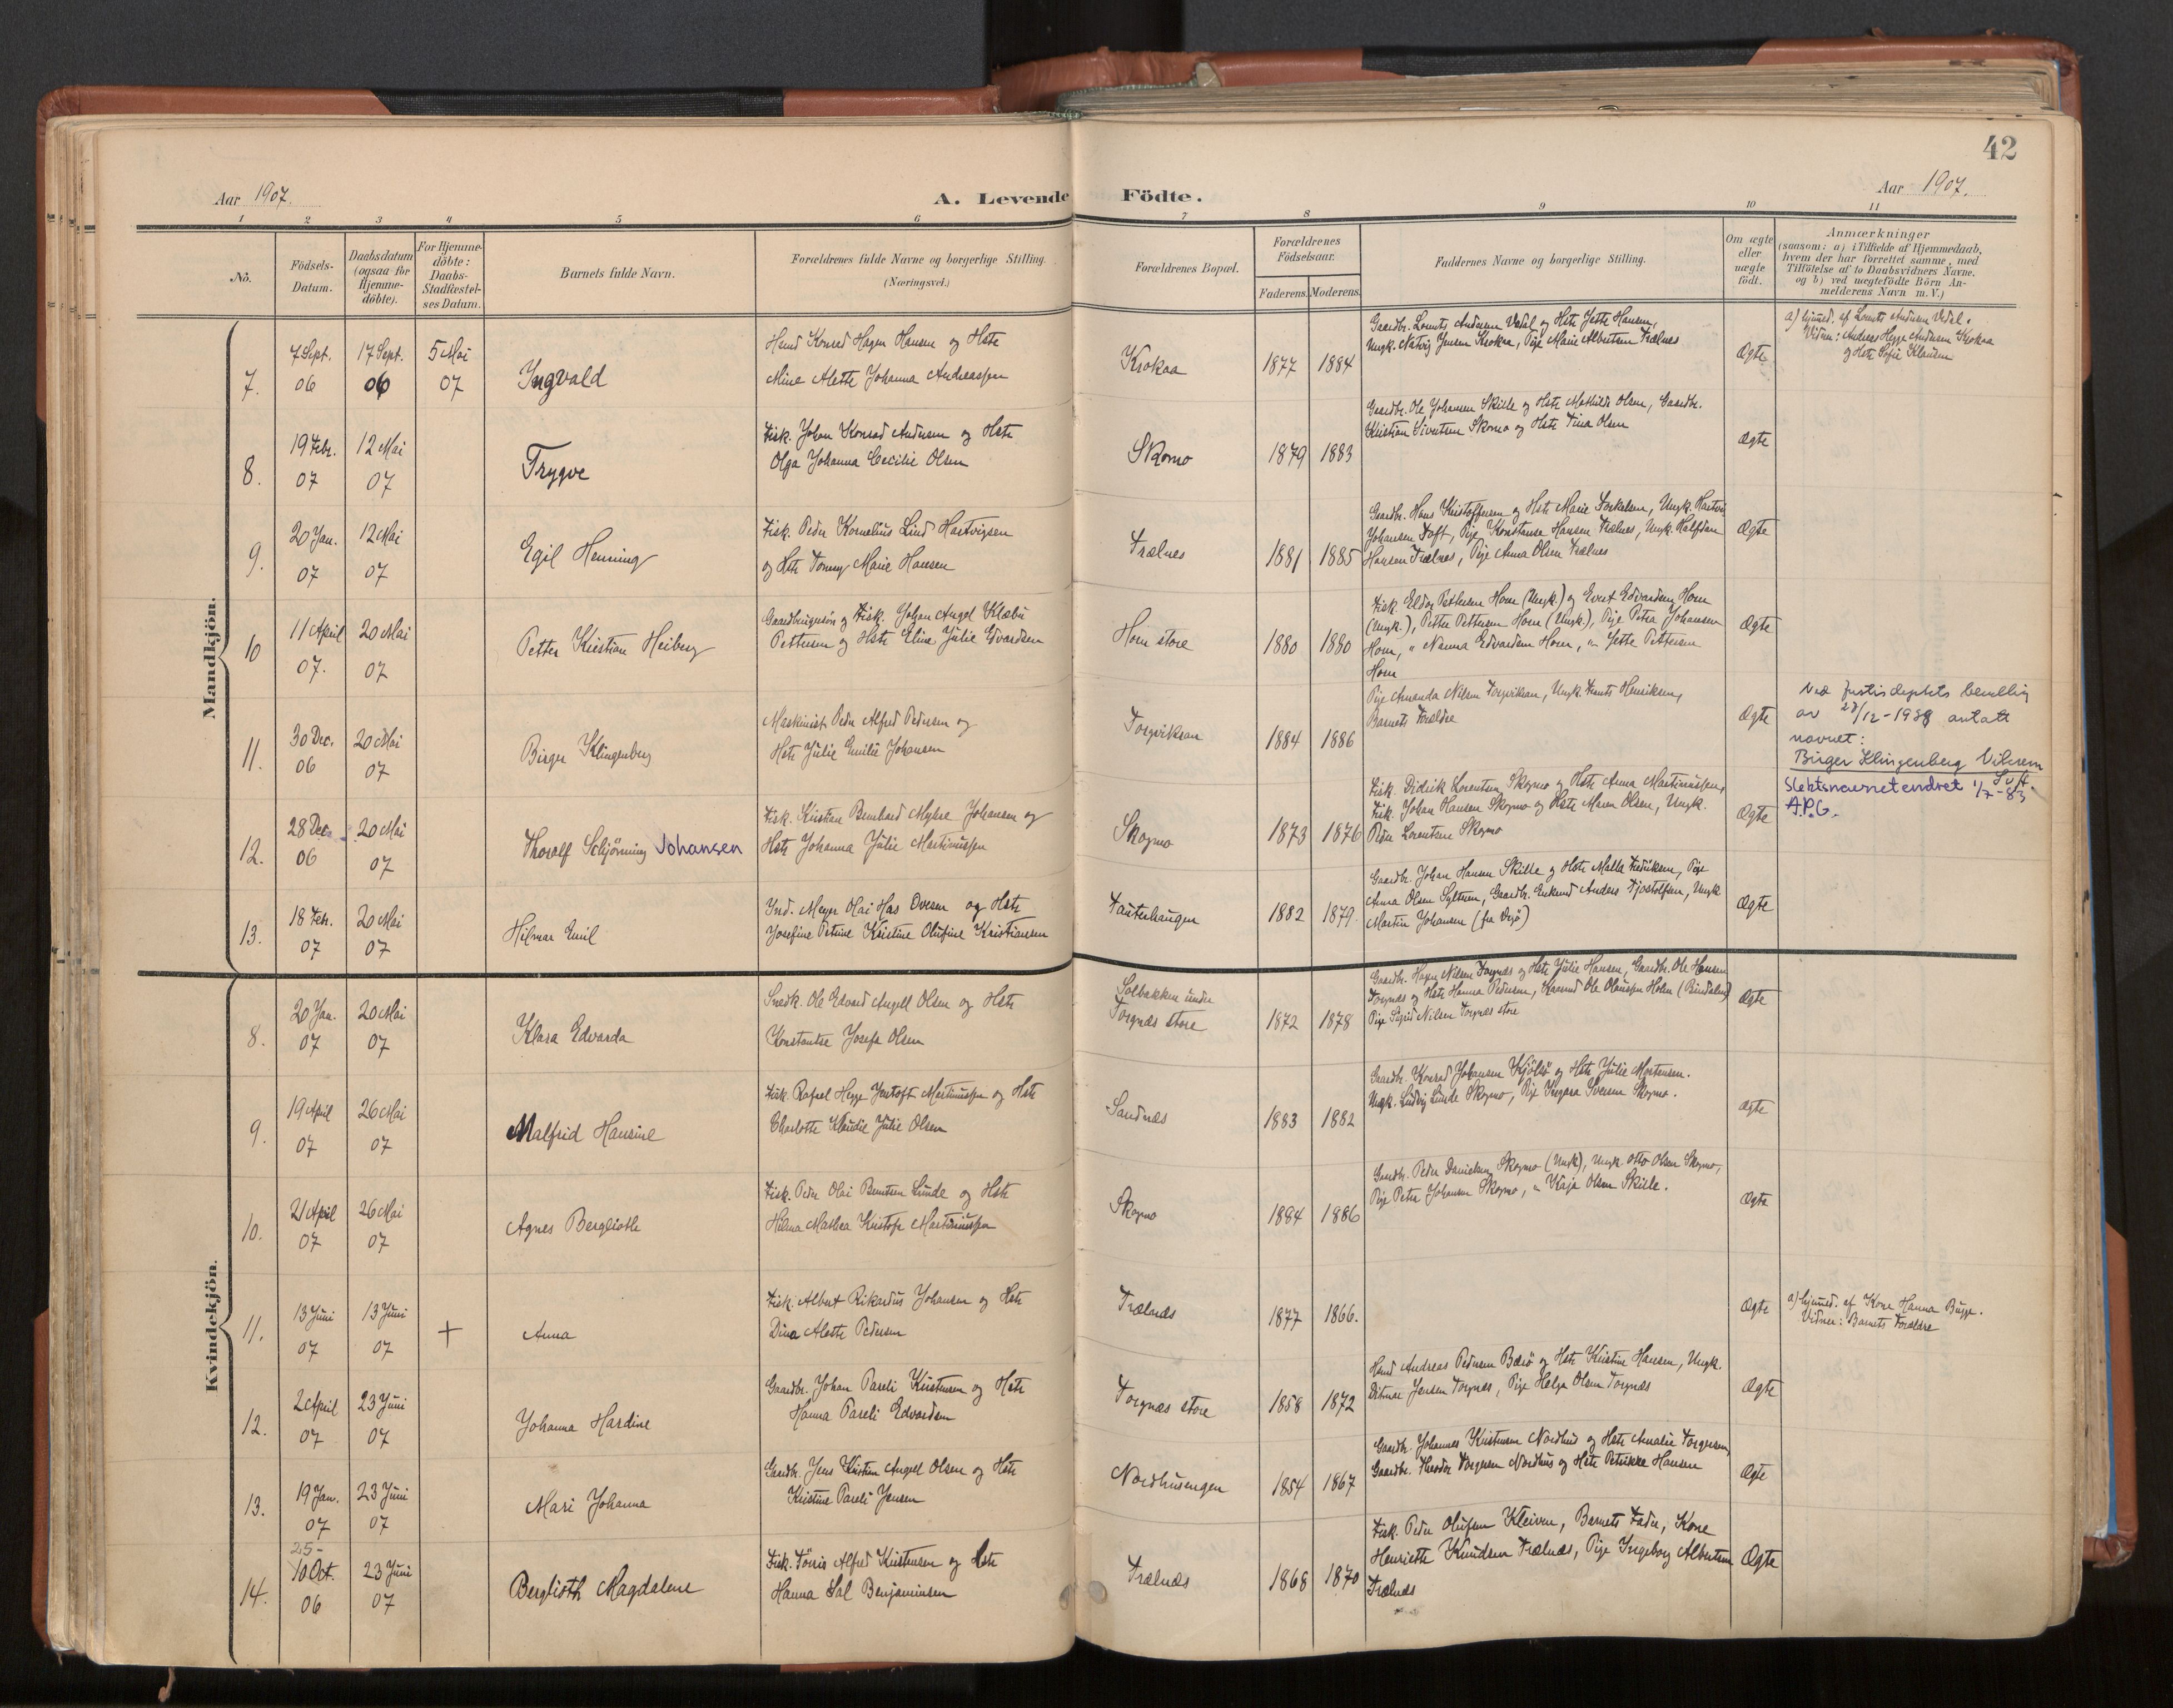 42
Aar 1907.
A. Levende Födte.
Aar 1907.
1 2 3 4 5 6 7 8 9 10 11
No.
Födsels-Datum.
Daabsdatum (ogsaa for Hjemme-döbte).
For Hjemme-döbte: Daabs-Stadfæstel-ses Datum.
Barnets fulde Navn.
Forældrenes fulde Navne og borgerlige Stilling.
(Næringsvei.)
Forældrenes Bopæl.
Forældrenes Födselsaar.
Faderens. Moderens.
Faddernes Navne og borgerlige Stilling.
Om ægte eller uægte födt.
Anmærkninger
(saasom: a) i Tilfælde af Hjemmedaab,
hvem der har forrettet samme, med
Tilföielse af to Daabsvidners Navne.
og b) ved uægtefödte Börn An-
melderens Navn m. V.)
Mandkjön.
7. 7 Sept. 06 17 Sept. 06 5 Mai 07
Ingvald
Konrad Hagen Hansen og Hstr
Aline Alette Johanna Andreassen
Krokaa 1877 1884
Gaardbr. Lorents Andersen Vedal og Hstr Jette Hansen,
Ungk. Jensen Krokaa, Pige Marie Albertsen Trælnes
Ægte
a) hjmmed. af Lorents Andersen Vedal.
Vidner: Anders Hegge Andersen Krokaa
og Hstr Sofie Klausen
8. 19 Febr. 07 12 Mai 07
Trygve
Fisk. Johan Konrad Andersen og Hstr
Olga Johanna Cecilie Olsen
Skomo 1879 1883
Gaardbr. Ole Johansen Skille og Hstr Mathilde Olsen, Gaardbr.
Kristian Sivertsen Skomo og Hstr Tina Olsen
Ægte
9. 20 Jan. 07 12 Mai 07
Egil Henning
Fisk. Peder Kornelius Lind Hartvigsen
og Hstr Tomy Marie Hansen
Trælnes 1881 1885
Gaardbr. Hans Kristoffersen og Hstr Marie Torkelsen, Ungk. Hartvig
Johansen Toft, Pige Konstanse Hansen Trælnes, Ungk. Halfdan
Hansen Trælnes, Pige Anna Olsen Trælnes
Ægte
10 11 April 07. 20 Mai 07
Petter Kristian Heiberg
og Fisk. Johan Angel Klæbu
Pettersen og Hstr Eline Julie Edvardsen
Horn store 1880 1880
Fisk. Eldor Pettersen Horn (Ungk.) og Evert Edvardsen Horn
(Ungk.), Petter Pettersen Horn (Ungk.), Pige Petra Johansen
Horn, " Nanna Edvardsen Horn, " Jette Pettersen
Horn
Ægte
11. 30 Dec. 06 20 Mai 07
Birger Klingenberg
Maskinist Peder Alfred Pedersen og
Hstr Julie Emilie Johansen
Torgviksan 1884 1886
Pige Amanda Nilsen Torgviksan, Ungk. Henriksen,
Barnets Forældre
Ægte
Ved Justisdeptets bevilling
av 28/12-1938 antatt
navnet:
Birger Klingenberg Vilsrem
12. 28 Dec. 06 20 Mai 07
Thoralf Schjönning Johansen
Fisk. Kristian Bernhard Myhre Johansen og
Hstr Johanna Julie Martinussen
Skogmo 1873 1876
Fisk. Didrik Lorentsen Skogmo og Hstr Anna Martinussen,
Fisk. Johan Hansen Skogmo og Hstr Maren Olsen, Ungk.
Peder Lorentsen Skogmo
Ægte
Slektsnavnet endret 1/7-83
A.P.G.
13. 18 Febr. 07 20 Mai 07
Hilmar Emil
Ind. Meyer Olai Has Ovesen og Hstr
Josefine Petrine Kristine Olufine Kristiansen
Tauterhaugen 1882 1879.
Gaardbr. Johan Hansen Skille og Hstr Malla Fredriksen, Pige
Anna Olsen Sylteren, Gaardbr. Enkemd Anders Tjostolfsen, Ungk
Martin Johansen (fra Vegö)
Ægte
Kvindekjön.
8. 20 Jan. 07 20 Mai 07
Klara Edvarda
Snedk. Ole Edvard Angell Olsen og Hstr
Konstantse Josefe Olsen
Solbakken under
Torgnæs store 1872 1878
Gaardbr. Hagen Nilsen Torgnæs og Hstr Julie Hansen, Gaardbr. Ole Hansen
Torgnæs og Hstr Hanna Pedersen, Ole Olaussen Holm (Bindalen)
Pige Sigrid Nilsen Torgnæs store
Ægte
9. 19 April 07 26 Mai 07
Malfrid Hansine
Fisk. Rafael Hegge Jentoft Martinussen og Hstr
Charlotte Klaudie Julie Olsen
Sandnæs 1883 1882
Gaardbr. Konrad Johansen Kjölsö og Hstr Julie Mortensen.
Ungk. Ludvig Lunde Skogmo, Pige Ingvara Iversen Skogmo.
Ægte
10. 21 April 07 26 Mai 07
Agnes Bergliothe
Fisk. Peder Olai Berntsen Lunde og Hstr
Hilma Mathea Kristofa Martinussen
Skogmo 1884 1886
Gaardbr. Peder Danielsen Skogmo (Ungk), Ungk Otto Olsen Skogmo,
Pige Petra Johansen Skogmo, " Kaja Olsen Skille.
Ægte
11. 13 Juni 07 13 Juni 07 +
Anna
Fisk. Albert Rikardus Johansen og Hstr
Dina Alette Pedersen
Trælnæs 1877 1866.
Ægte
a) hjmmed. af Kone Hanna Bugge.
Vidner: Barnets Forældre
12. 2 April 07 23 Juni 07
Johanna Hardine
Gaardbr. Johan Pareli Kristensen og Hstr
Hanna Pareli Edvardsen
Torgnæs store 1858 1872
Andreas Pedersen Bærö og Hstr Kristine Hansen, Ungk.
Ditmar Jensen Torgnæs, Pige Helga Olsen Torgnæs
Ægte
13. 19 Jan. 07 23 Juni 07
Mari Johanna
Gaardbr. Jens Kristian Angell Olsen og Hstr
Kristine Pareli Jensen
Nordhusengen 1854 1867
Gaardbr. Johannes Kristensen Nordhus og Hstr Amalie Torgersen,
Gaardbr. Theodor Torgersen Nordhus og Hstr Petrikke Hansen
Ægte
14. 25- 10 Oct. 06 23 Juni 07
Berglioth Magdalene
Fisk. Tönnis Alfred Kristensen og Hstr
Hanna Sal Benjaminsen
Trælnæs 1868 1870
Fisk. Peder Olufsen Kleiven, Barnets Fader, Kone
Henriette Knudsen Trælnæs, Pige Ingeborg Albertsen
Trælnæs
Ægte